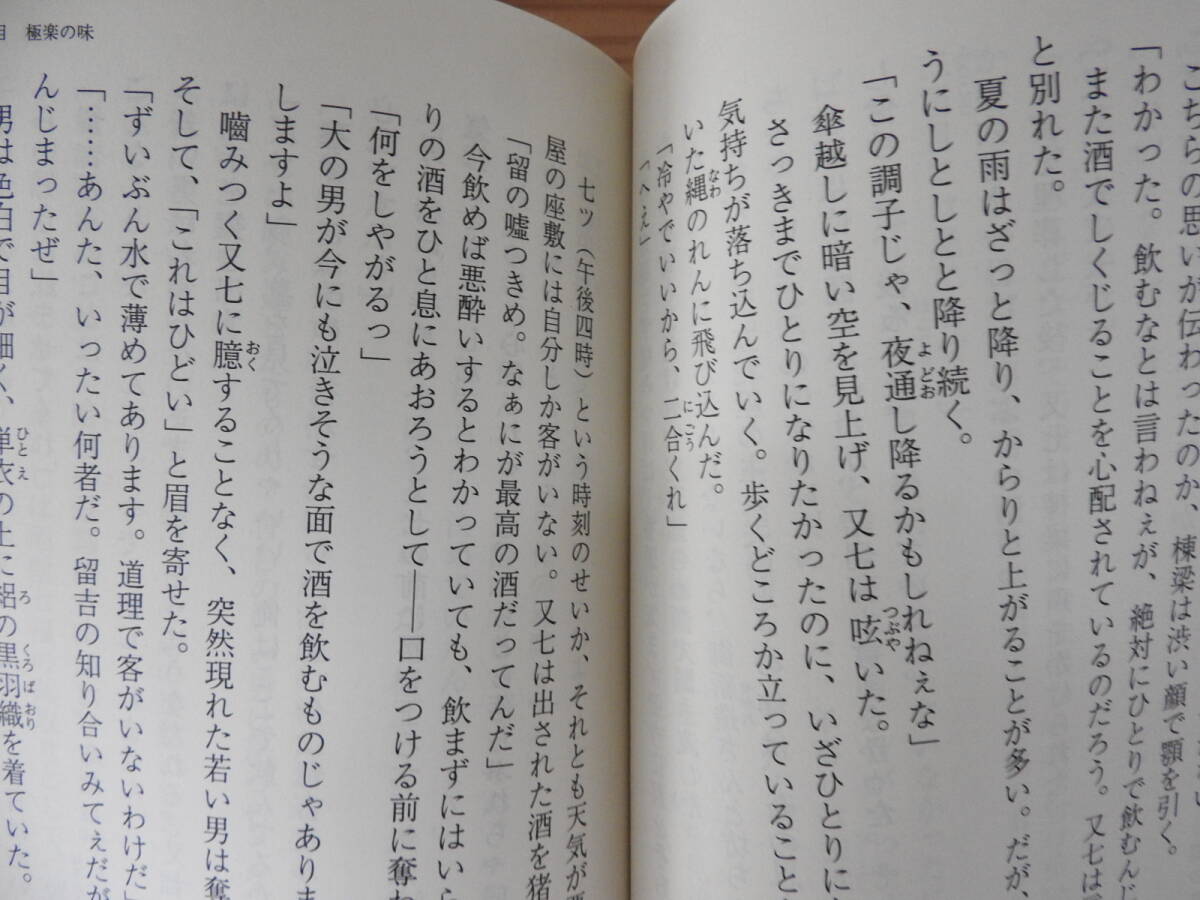 こちらの思いが伝わったのか、棟梁は渋い顔で顎を引く。
「わかった。飲むなとは言わねぇが、絶対にひとりで飲むんじ
また酒でしくじることを心配されているのだろう。又七は
と別れた。
夏の雨はざっと降り、からりと上がることが多い。だが、
うにしとしとと降り続く。
「この調子じゃ、夜通し降るかもしれねぇな」
傘越しに暗い空を見上げ、又七は呟いた。
さっきまでひとりになりたかったのに、いざひとりに
気持ちが落ち込んでいく。歩くどころか立っていること
いた縄のれんに飛び込んだ。
「冷やでいいから、二合くれ」
「へえ」
目 極楽の味
七ツ（午後四時）という時刻のせいか、それとも天気が
屋の座敷には自分しか客がいない。又七は出された酒を猪
「留の嘘つきめ。なぁにが最高の酒だってんだ」
今飲めば悪酔いするとわかっていても、飲まずにはいら
りの酒をひと息にあおろうとして――口をつける前に奪わ
「何をしやがるっ」
「大の男が今にも泣きそうな面で酒を飲むものじゃありま
しますよ」
嚙みつく又七に臆することなく、突然現れた若い男は奪
そして、「これはひどい」と眉を寄せた。
「ずいぶん水で薄めてあります。道理で客がいないわけだ」
「……あんた、いったい何者だ。留吉の知り合いみてぇだが
んじまったぜ」
男は色白で目が細く、単衣の上に絽の黒羽織を着ていた。